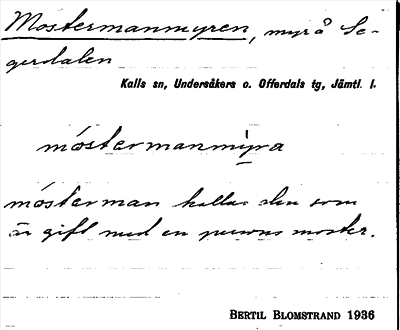 Mostermanmyren, myr å Se-
gerdalen
Kalls sn, Undersåkers o. Offerdals tg, Jämtl. l.
móstermanmỳra
mósterman kallas den som
är gift med en persons moster.
BERTIL BLOMSTRAND 1936